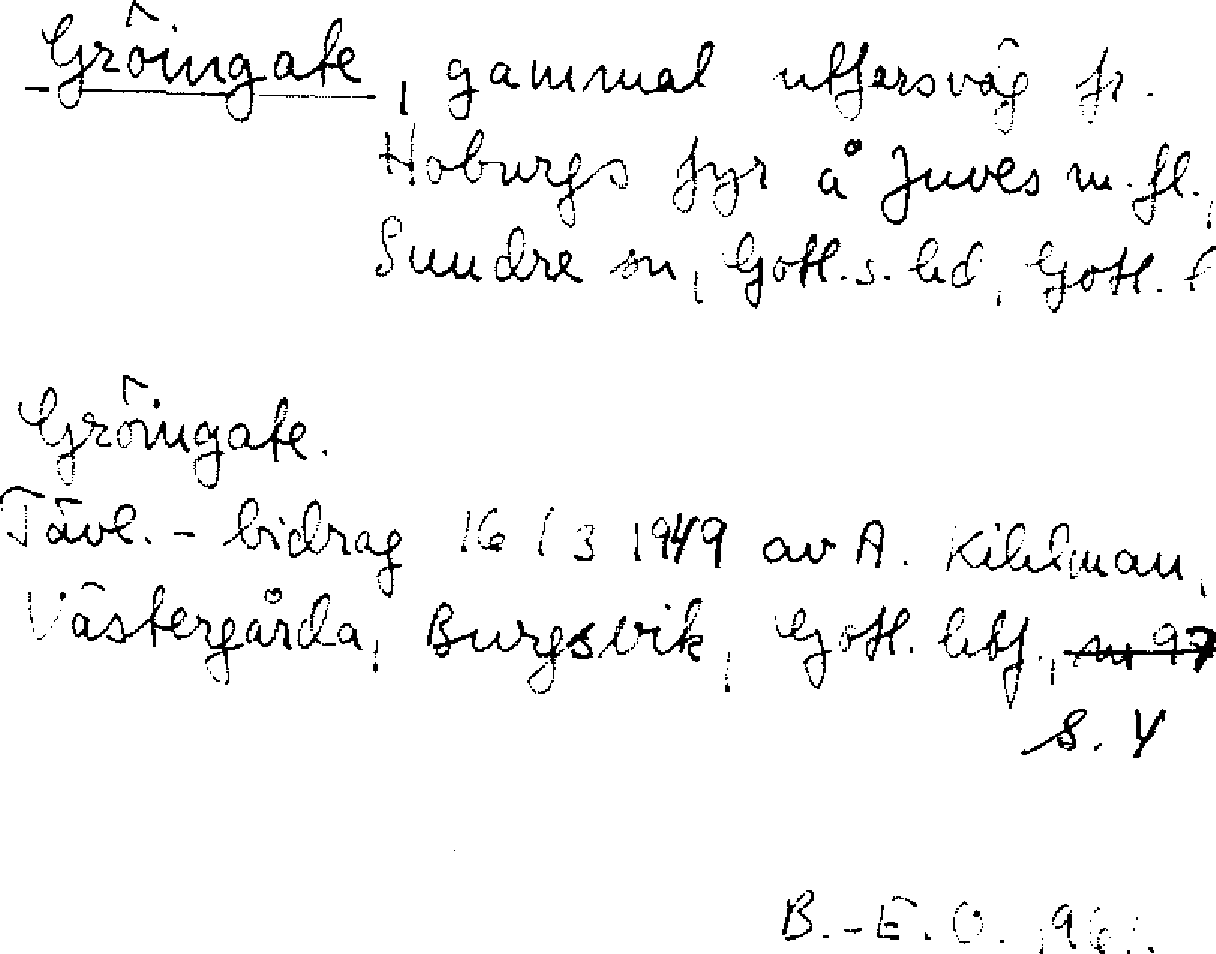 Gröingate, gammal utfarsväg fr.
Hoburgs fyr å Juves m.fl.,
Sundre sn, Gotl. s. hd, Gotl. l
Gröingate.
Tävl.-bidrag 16/3 1949 av A. Kihlman,
Västergårda, Burgsvik, Gotl. lbf.,
s. 4
B.-E. O. 1961.